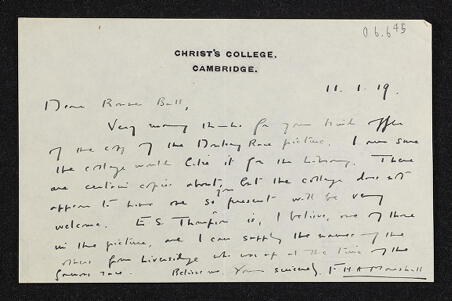 06.645
CHRIST'S COLLEGE.
CAMBRIDGE.
11.1.19.
Dear Rouse Ball,
Very many thanks for your kind offer
of the copy of the Donkey Race picture. I am sure
the college would like it for the Library. There
are certain copies about, but the college does not
appear to have one so your present will be very
welcome. E.S. Thompson is, I believe, one of those
in the picture, and I can supply the names of the
others from Liversidge who was up at the time of the
famous race. Believe me Yours sincerely, F H A Marshall